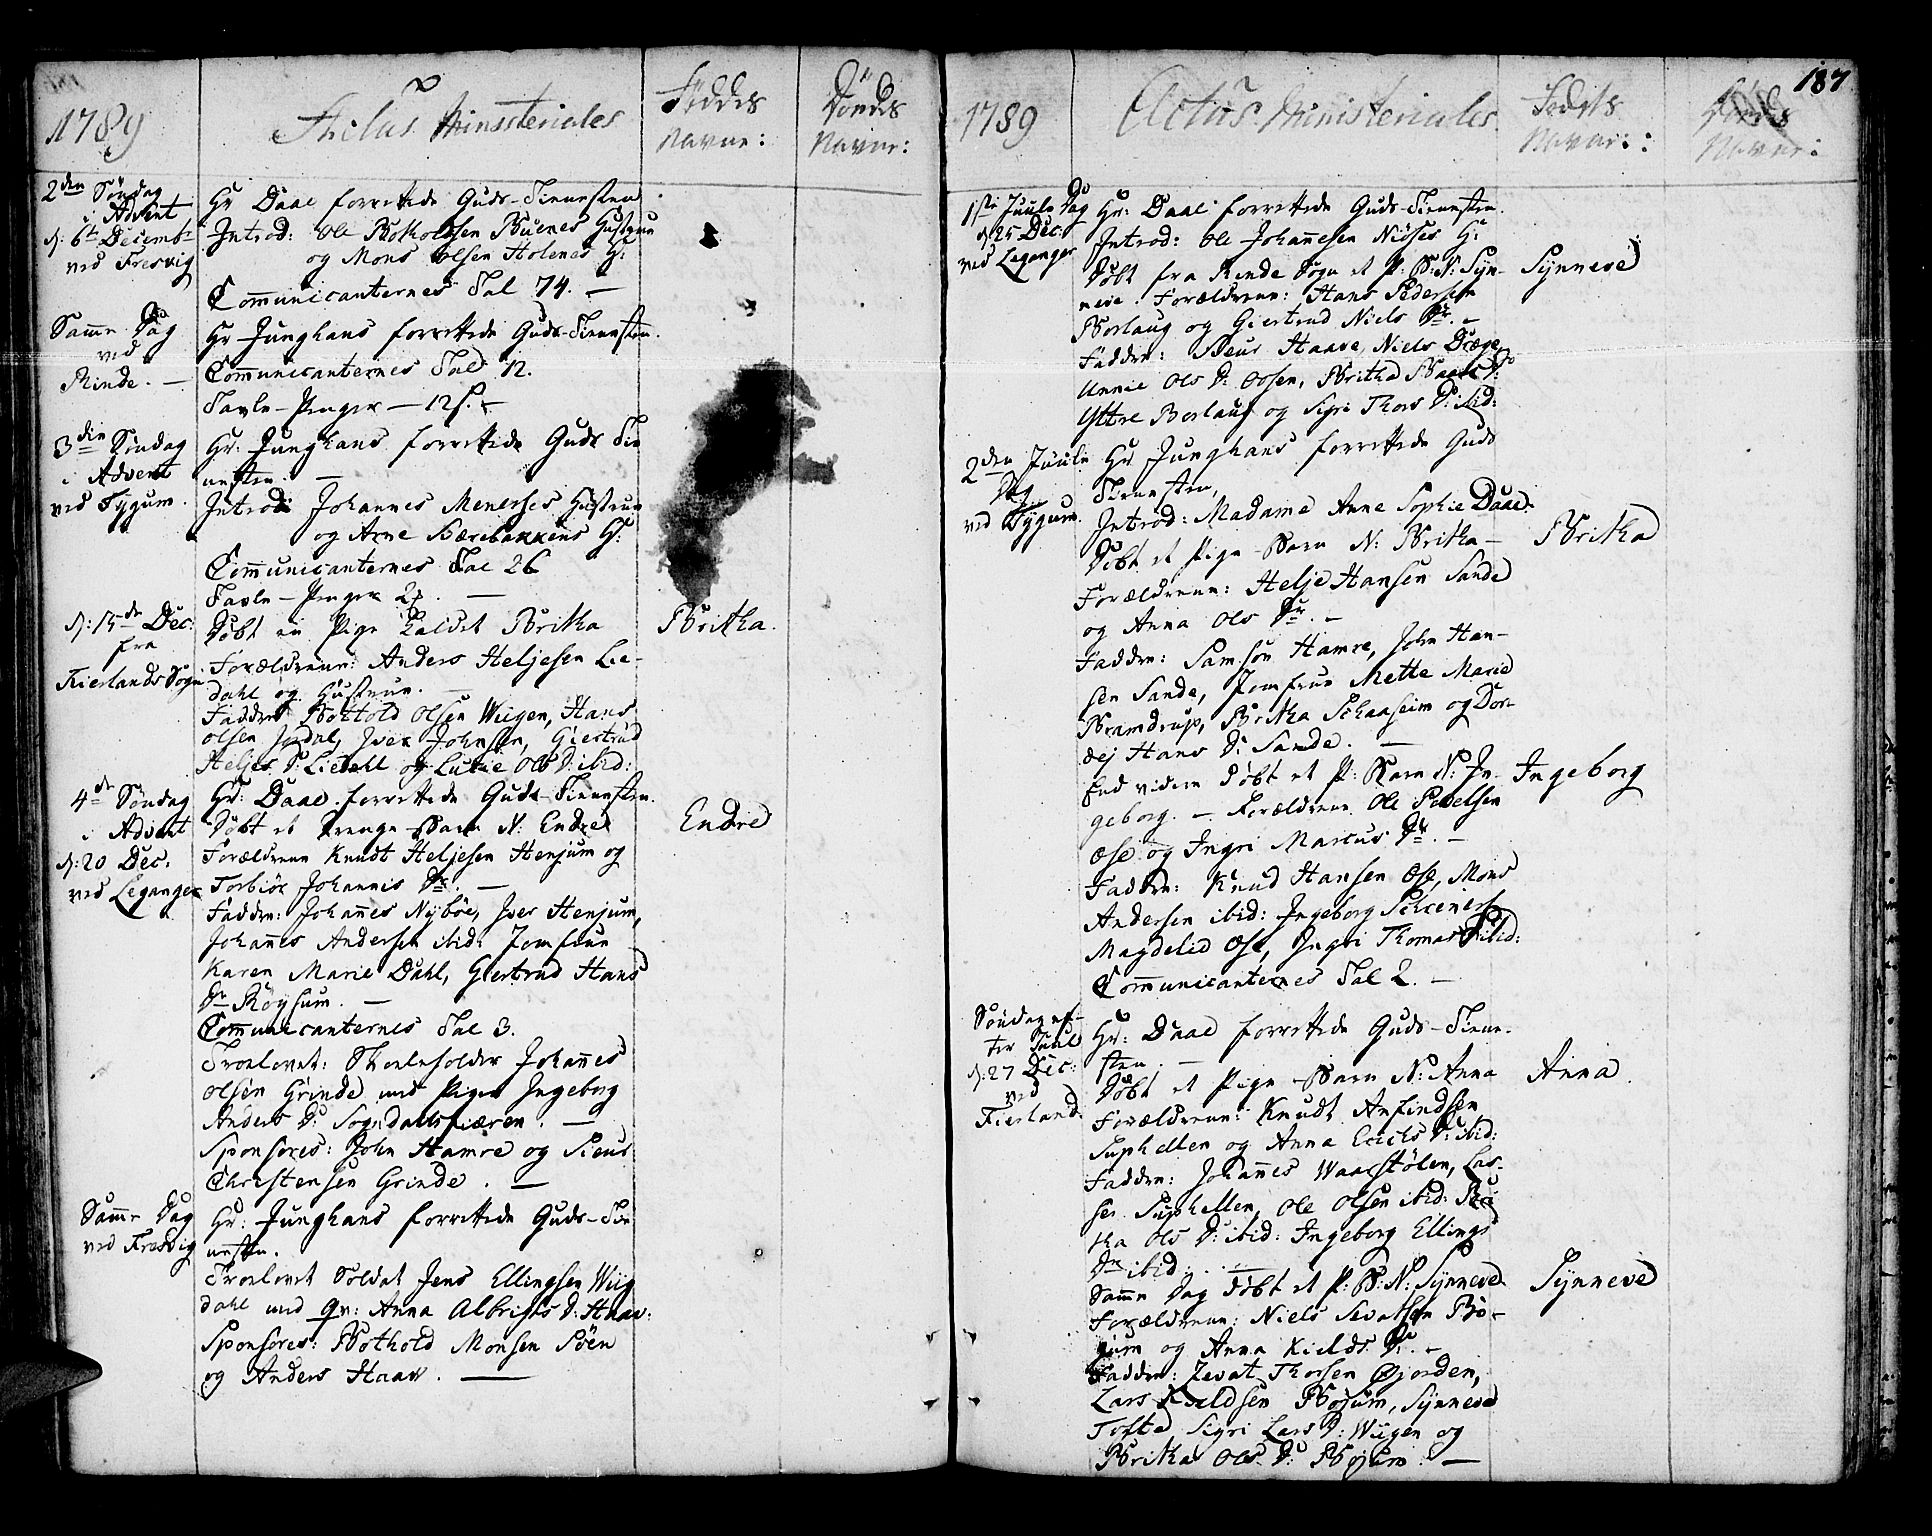 1789
Actus Ministeriales
Föddes
Navne:
Döndes
Navne:
2den Söndag
i Advent
d: 6te Decembr
ved Fresvig
Hr Daae forrettede Guds-Tienesten
Introd: Ole Botholdsen Buenes Hustrue
og Mons Olsen Holenes H:
Communicanternes Tal 74. —
Samme Dag
ved
Rinde. —
Hr Junghans forrettede Guds-Tienesten.
Communicanternes Tal 12.
Tavle-Penger — 12 s. —
3die Söndag
i Advent
ved Tygum.
Hr: Junghans forrettede Guds Tie
nesten. —
Introd: Johannes Menesses Hustrue
og Arne Bærebakkens H:
Communicanternes Tal 26
Tavle-Penger 2
d: 15de Dec:
fra
Fierlands Sogn
Döbt en Pige kaldet Britha
Britha.
Forældrene: Anders Heljesen Lie-
dahl og Hustrue. —
Faddre: Bothold Olsen Wiigen, Hans
Olsen Jordal, Iver Johnsen, Giertrud
Heljes D: Liedahl og Lucie Ols D: ibid:
4de Söndag
i Advent
d: 20 Dec:
ved Leganger
Hr: Daae forrettede Guds-Tienesten.
Döbt et Drenge-Barn N: Endre
Endre
Forældrene Knudt Heljesen Henjum og
Torbiör Johannis Dr. —
Faddre: Johannes Nyböe, Iver Henjum,
Johannes Andersen ibid: Jomfrue
Karen Marie Dahl, Giertrud Hans
Dr Röysum. —
Communicanternes Tal 3.
Troelovet: Skoeleholder Johannes
Olsen Grinde med Pigen Ingeborg
Anders D: Sogndalsfiæren. —
Sponsores: John Hamre og Siur
Christensen Grinde. —
Samme Dag
ved Fresvig
Hr: Junghans forrettede Guds-Tie
nesten.
Troelovet Soldat Jens Ellingsen Wiig
dahl med qv: Anna Albrigts D: Haav:
Sponsores: Bothold Monsen Söen
og Anders Haav. —
187
1789
Actus Ministeriales
Födtes
Navne:
Dödes
Navne:
1ste Juule Dag
d: 25 Dec:
ved Leganger
Hr: Daae forrettede Guds-Tienesten.
Introd: Ole Johannesen Niöses H:
Döbt fra Rinde Sogn et P: B: N: Syn-
Synneve
neve. Forældrene: Hans Pedersen
Borlaug og Giertrud Niels Dr. —
Faddre: Siur Haave, Niels Dræge
Annie Ols D: Ossen, Britha Baars Dr
Yttre Borlaug og Sigri Thors D: ibid:
2den Juule
Dag
ved Tygum.
Hr Junghans forrettede Guds
Tienesten,
Introd: Madame Anne Sophie Daae
Döbt et Pige-Barn N: Britha —
Britha
Forældrene: Helje Hansen Sande
og Anna Ols Dr. —
Faddre: Samson Hamre, John Han-
sen Sande, Jomfrue Mette Marie
Bramdrup, Britha Schaaseim og Dor-
dej Hans D: Sande. —
End videre döbt et P: Barn N: In-
Ingeborg
geborg. — Forældrene Ole Povelsen
Ose og Ingri Marcus Dr. —
Faddre: Knud Hansen Ose, Mons
Andersen ibid: Ingeborg
Magdelid Ose, Ingri Thomas D: ibid:
Communicanternes Tal 2. —
Söndag ef-
ter Juul
d: 27 Dec:
ved
Fierland.
Hr: Daae forrettede Guds-Tiene-
sten. —
Döbt et Pige-Barn N: Anna
Anna.
Forældrene: Knudt Anfindsen
Suphellen og Anna Erichs D: ibid:
Faddre: Johannes Waarstölen, Las-
se Suphellen, Ole Olsen ibid: Bri
tha Ols D: ibid: Ingeborg Ellings
Dr ibid: . . —
Samme Dag döbt et P: B: N: Synneve
Synneve
Forældrene: Niels Sevatsen Bö-
jum og Anna Kields Dr. —
Faddre: Zevat Thorsen Öjorden,
Lars Kieldsen Böjum, Synneve
Tofte Sigri Lars D: Wiigen og
Britha Ols D: Böjum. —